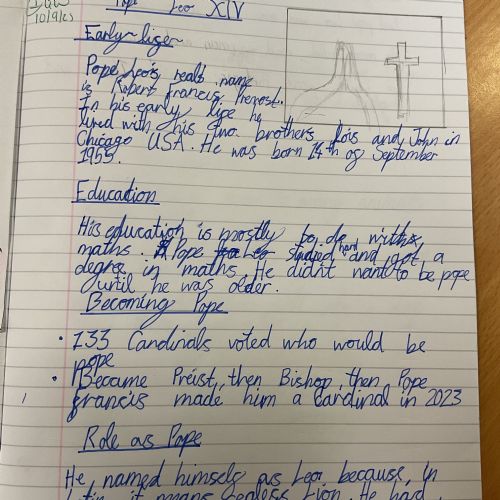 10/9/25
Pope Leo XIV
Early life
Pope Leo's real name
is Robert francis Prevost.
In his early life he
lived with his two brothers lois and John in
Chicago USA. He was born 14th of September
1955.
Education
His education is mostly to do with
maths. Pope Leo studied hard and got a
degre in maths. He didn't want to be pope
until he was older.
Becoming Pope
• 133 Cardinals voted who would be
pope
• Became Preist, then Bishop, then Pope
francis made him a Cardinal in 2023
Role as Pope
He, named himself as Leo, because, in
it means Lion. He had